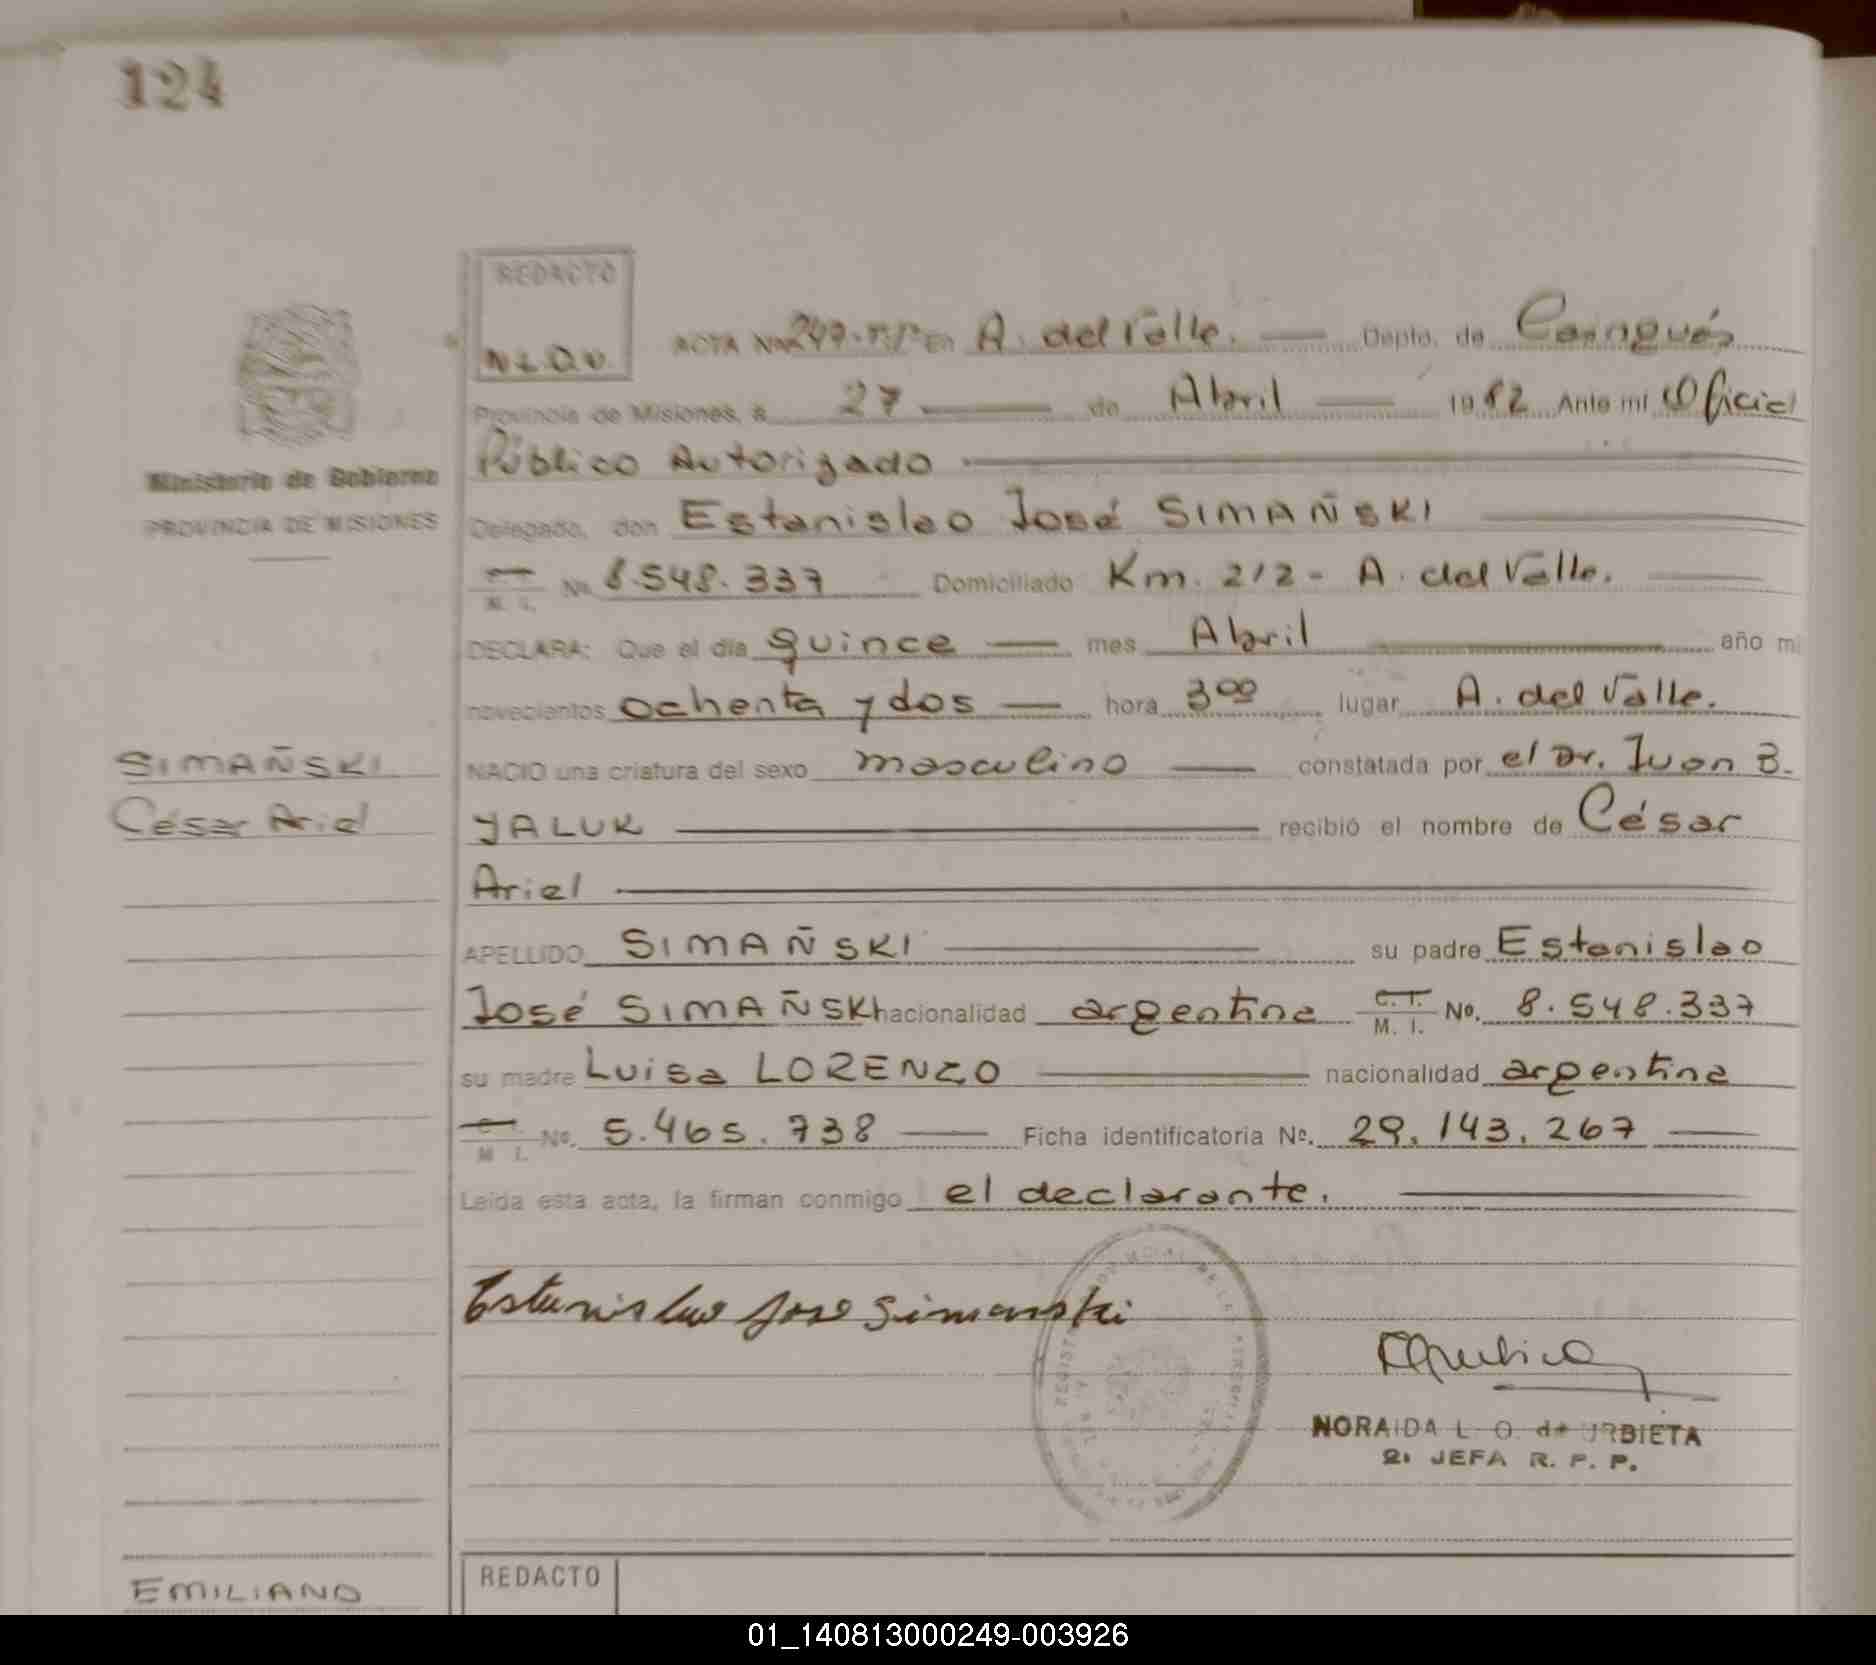 124
REDACTO
N L O U.
ACTA No. 247-T:I° En A. del Valle. Depto. de Cainguás
Provincia de Misiones, a 27 de Abril 1982 Ante mí Oficial
Ministerio de Gobierno
Público Autorizado
PROVINCIA DE MISIONES
Delegado, don Estanislao José SIMAÑSKI
M. I. No. 8.548.337 Domiciliado Km. 212 - A. del Valle.
DECLARA: Que el día quince mes Abril año mi
novecientos ochenta y dos hora 3⁰⁰ lugar A. del Valle.
SIMAÑSKI
NACIO una criatura del sexo masculino constatada por el Dr. Juan B.
César Ariel
YALUK recibió el nombre de César
Ariel
APELLIDO SIMAÑSKI su padre Estanislao
José SIMAÑSKI nacionalidad argentina C. I. M. I. No. 8.548.337
su madre Luisa LORENZO nacionalidad argentina
C. I. M. I. No. 5.465.738 Ficha identificatoria No. 29.143.267
Leída esta acta, la firman conmigo el declarante.
Estanislao Jose Simanski
NORAIDA L. O. de URBIETA
2ª JEFA R. P. P.
REDACTO
EMILIANO
01_140813000249-003926